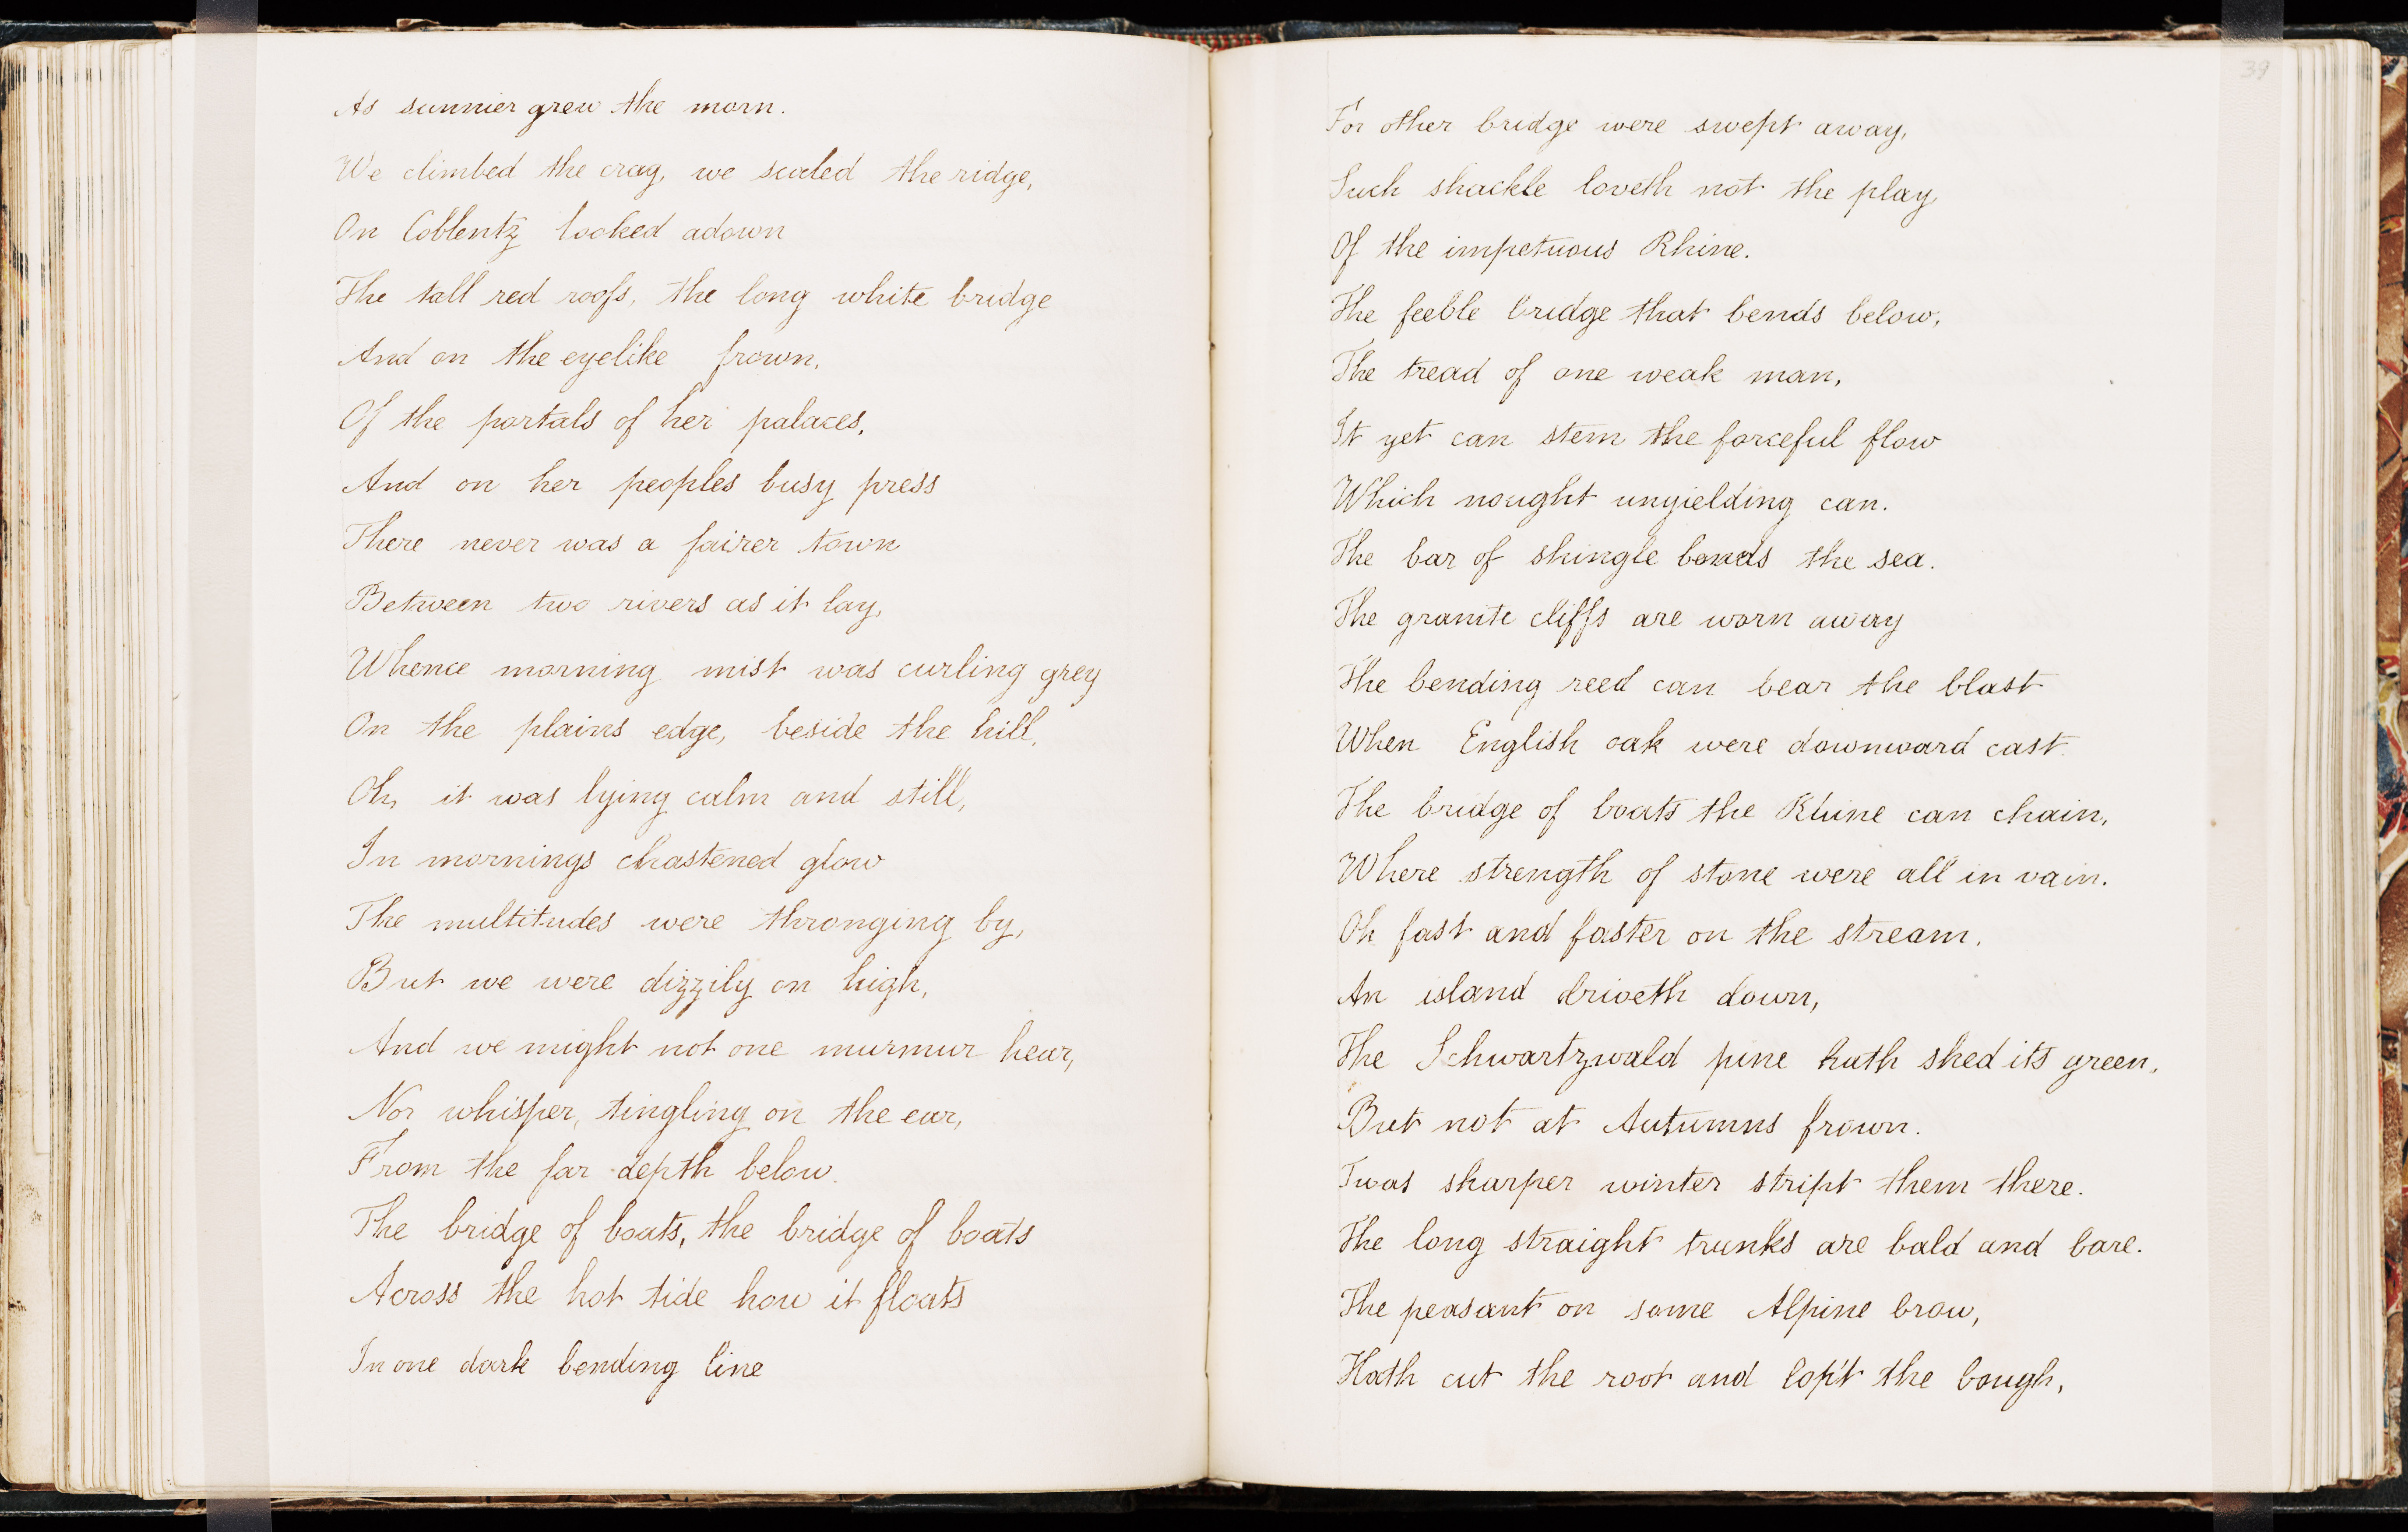 As sunnier grew the morn.
We climbed the crag, we scaled the ridge,
On Coblentz looked adown
The tall red roofs, the long white bridge
And on the eyelike frown,
Of the portals of her palaces,
And on her peoples busy press
There never was a fairer town
Between two rivers as it lay,
Whence morning mist was curling grey
On the plains edge, beside the hill,
Oh, it was lying calm and still,
In mornings chastened glow
The multitudes were thronging by,
But we were dizzily on high,
And we might not one murmur hear,
Nor whisper, tingling on the ear,
From the far depth below.
The bridge of boats, the bridge of boats
Across the hot tide how it floats
In one dark bending line
39
For other bridge were swept away,
Such shackle loveth not the play
Of the impetuous Rhine.
The feeble bridge that bends below,
The tread of one weak man,
It yet can stem the forceful flow
Which nought unyielding can.
The bar of shingle the sea.
The granite cliffs are worn away
The bending reed can bear the blast
When English oak were downward cast.
The bridge of boats the Rhine can chain,
Where strength of stone were all in vain.
Oh fast and faster on the stream,
An island driveth down,
The Schwartzwald pine hath shed its green,
But not at Autumns frown.
Twas sharper winter stript them there.
The long straight trunks are bald and bare.
The peasant on some Alpine brow,
Hath cut the root and lop't the bough,